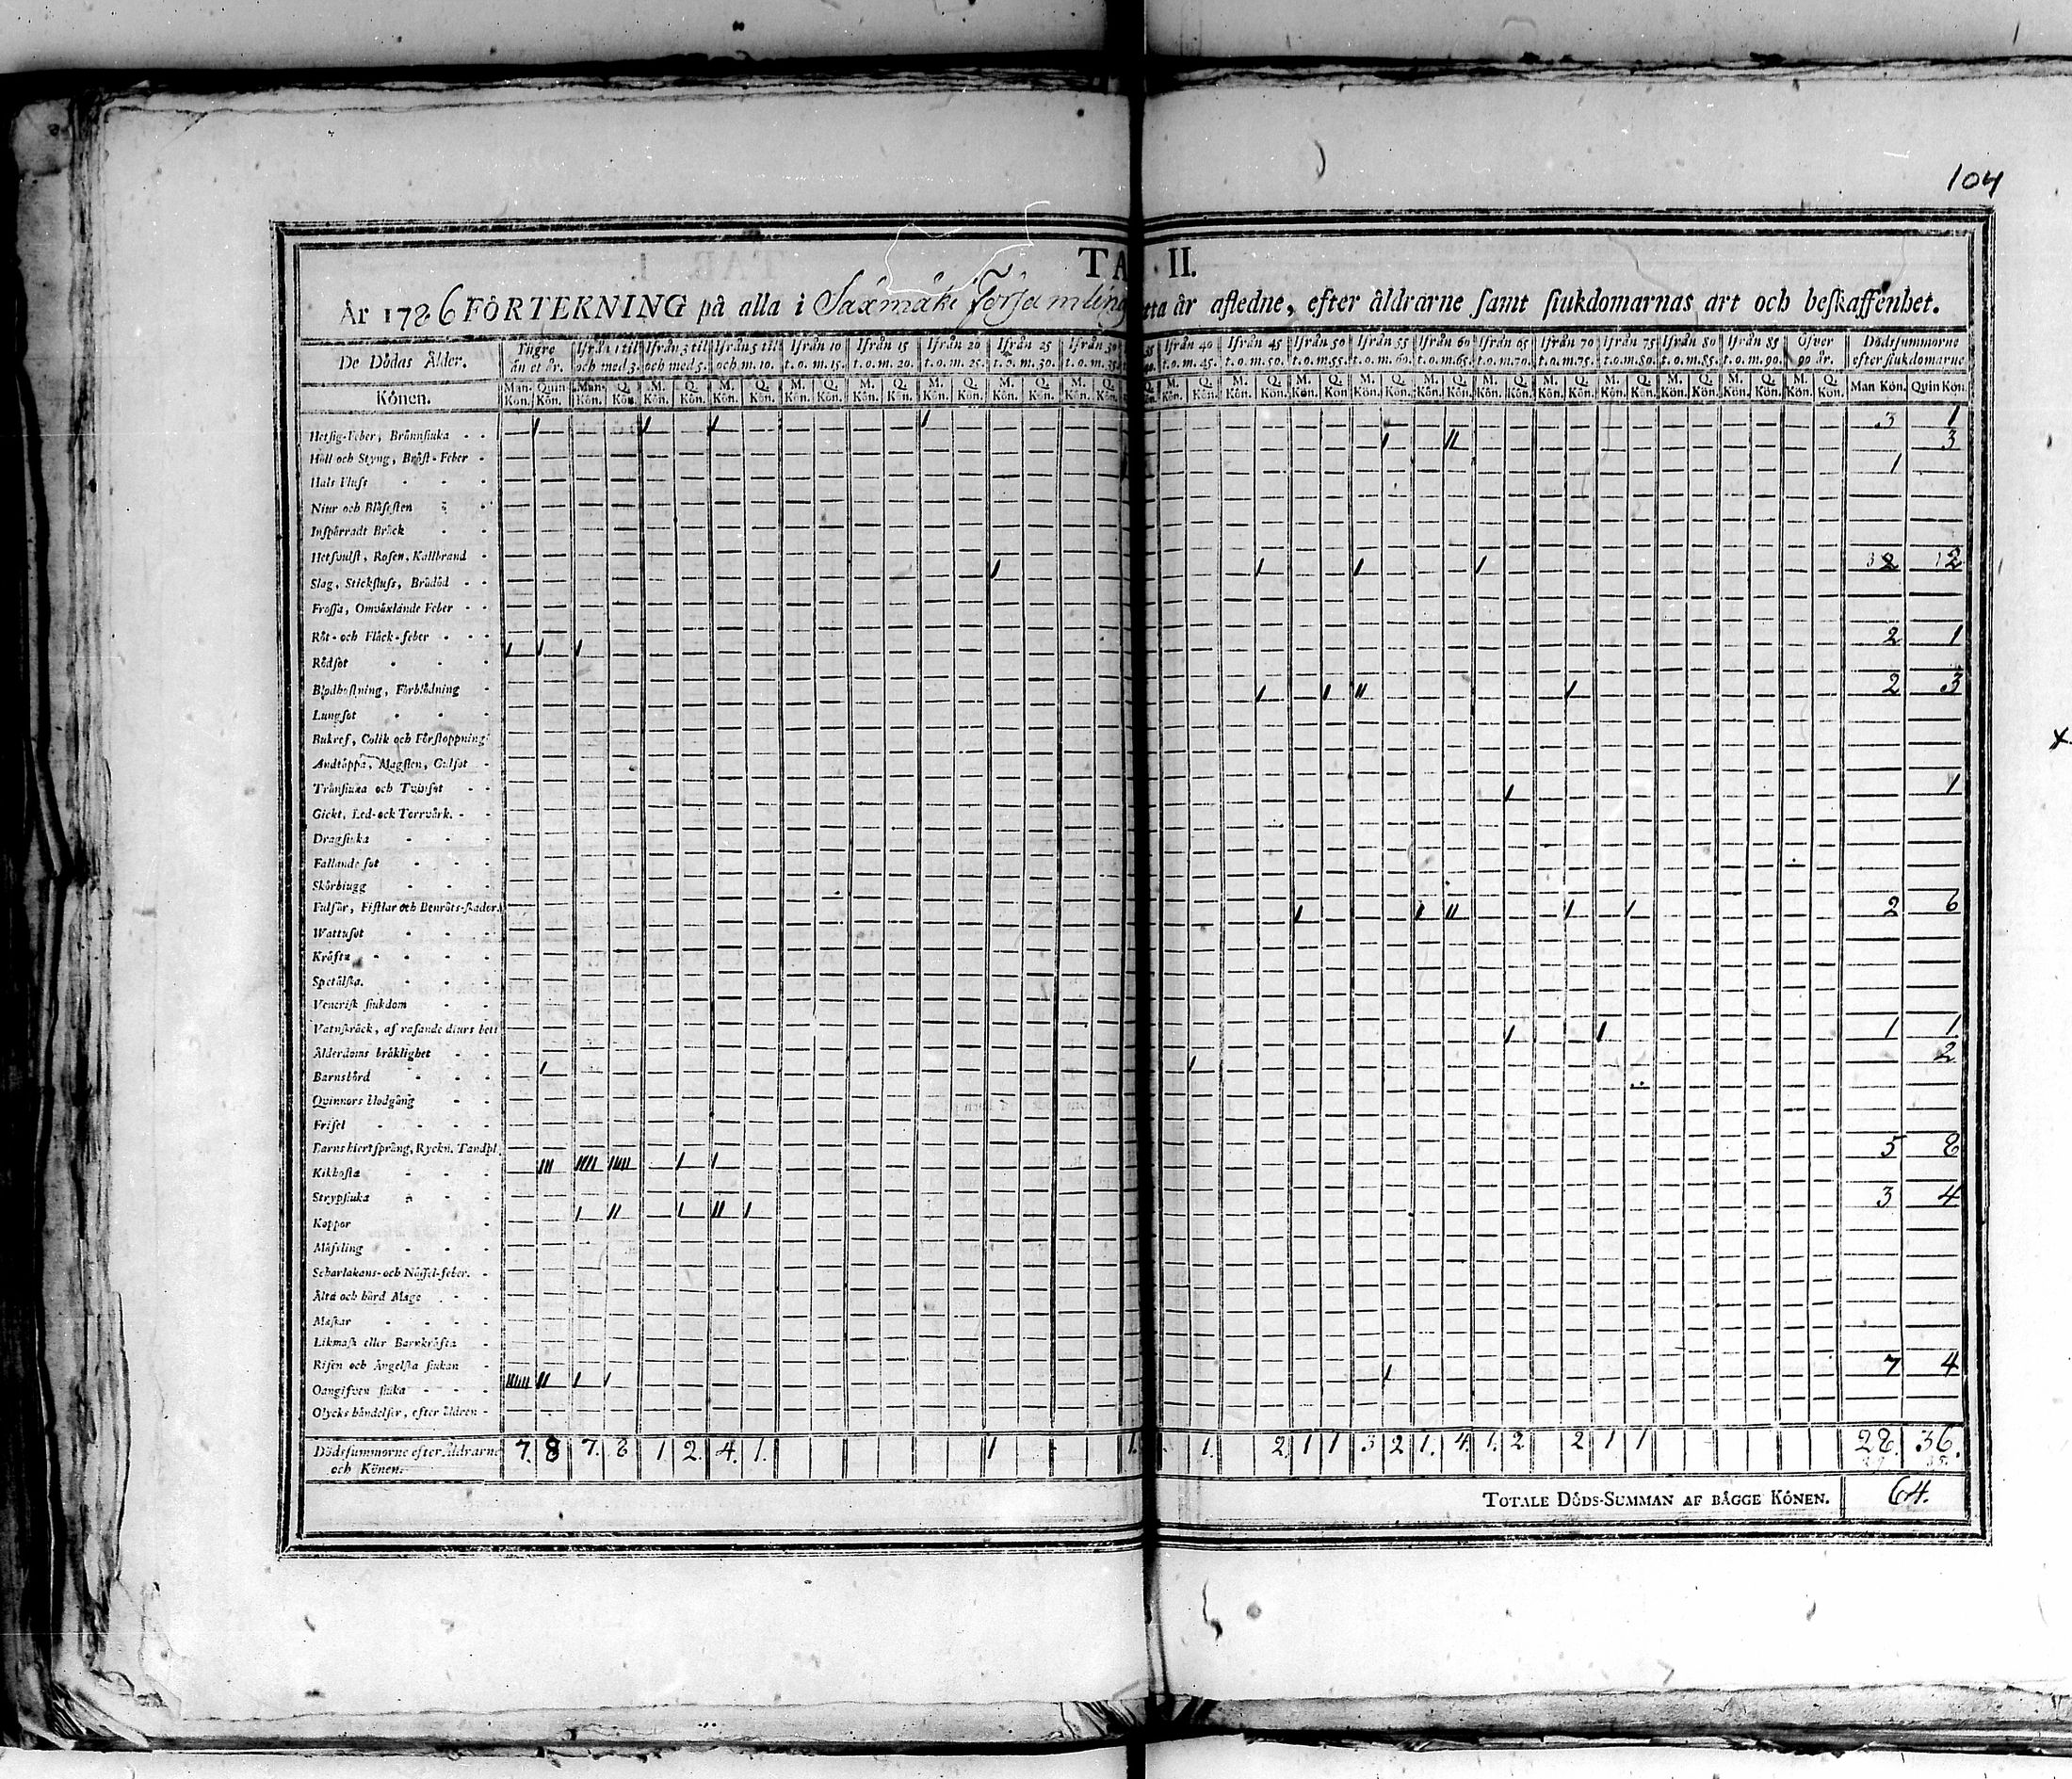 104
TA II.
År 1786 FÖRTEKNING på alla i Saxmäki Församling tta år afledne, efter åldrarne samt siukdomarnas art och beskaffenhet.
De Dödas Ålder. Yngre än et år. Ifrån 1 til och med 3. Ifrån 3 til och med 5. Ifrån 5 til och m. 10. Ifrån 10 t.o.m. 15. Ifrån 15 t.o.m. 20. Ifrån 20 t.o.m. 25. Ifrån 25 t.o.m. 30. Ifrån 30 t.o.m. 35. Ifrån 40 t.o.m. 45. Ifrån 45 t.o.m. 50. Ifrån 50 t.o.m. 55. Ifrån 55 t.o.m. 60. Ifrån 60 t.o.m. 65. Ifrån 65 t.o.m. 70. Ifrån 70 t.o.m. 75. Ifrån 75 t.o.m. 80. Ifrån 80 t.o.m. 85. Ifrån 85 t.o.m. 90. Öfver 90 år. Dödssummorne efter siukdomarne
Könen. Man-Kön. Quin Kön. Man-Kön. Q. Kön. M. Kön. Q. Kön. M. Kön. Q. Kön. M. Kön. Q. Kön. M. Kön. Q. Kön. M. Kön. Q. Kön. M. Kön. Q. Kön. M. Kön. Q. Kön. M. Kön. Q. Kön. M. Kön. Q. Kön. M. Kön. Q. Kön. M. Kön. Q. Kön. M. Kön. Q. Kön. M. Kön. Q. Kön. M. Kön. Q. Kön. M. Kön. Q. Kön. M. Kön. Q. Kön. M. Kön. Q. Kön. M. Kön. Q. Kön. Man Kön. Quin Kön.
Hetsig-Feber, Brännsiuka 3 1
Håll och Styng, Bröst-Feber 3
Hals Fluss 1
Niur och Blåsesten
Inspärradt Bråck
Hetsvulst, Rosen, Kallbrand
Slag, Stickfluss, Brådöd 2
Frossa, Omväxlande Feber
Röt- och Fläck-feber
Rödsot 2 1
Blodhostning, Förblödning
Lungsot 2 3
Bukref, Colik och Förstoppning
Andtäppa, Magsten, Gulsot
Trånsiuka och Tvinsot
Gickt, Led- och Torrvärk. 1
Dragsiuka
Fallande sot
Skörbiugg
Fulsår, Fistlar och Benröts-skador
Wattusot 2 6
Kräfta
Spetälska.
Venerisk siukdom
Vatuskräck, af rasande diurs bett
Ålderdoms bräklighet 1 1
Barnsbörd 2
Qvinnors blodgång
Frisel
Barns hiertsprång, Ryckn. Tandpl
Kikhosta 5 8
Strypsiuka
Koppor 3 4
Mässling
Scharlakans- och Nässel-feber.
Älta och hård Mage
Maskar
Likmask eller Barnkräfta
Risen och Ängelska siukan
Oangifven siuka 7 4
Olycks händelser, efter åldren
Dödssummorne efter åldrarne och Könen. 7. 8 7. 8. 1 2. 4. 1. 1 1. 1. 2. 1 1 3 2 1. 4. 1. 2 2 1 1 28. 36.
TOTALE DÖDS-SUMMAN AF BÄGGE KÖNEN. 64.